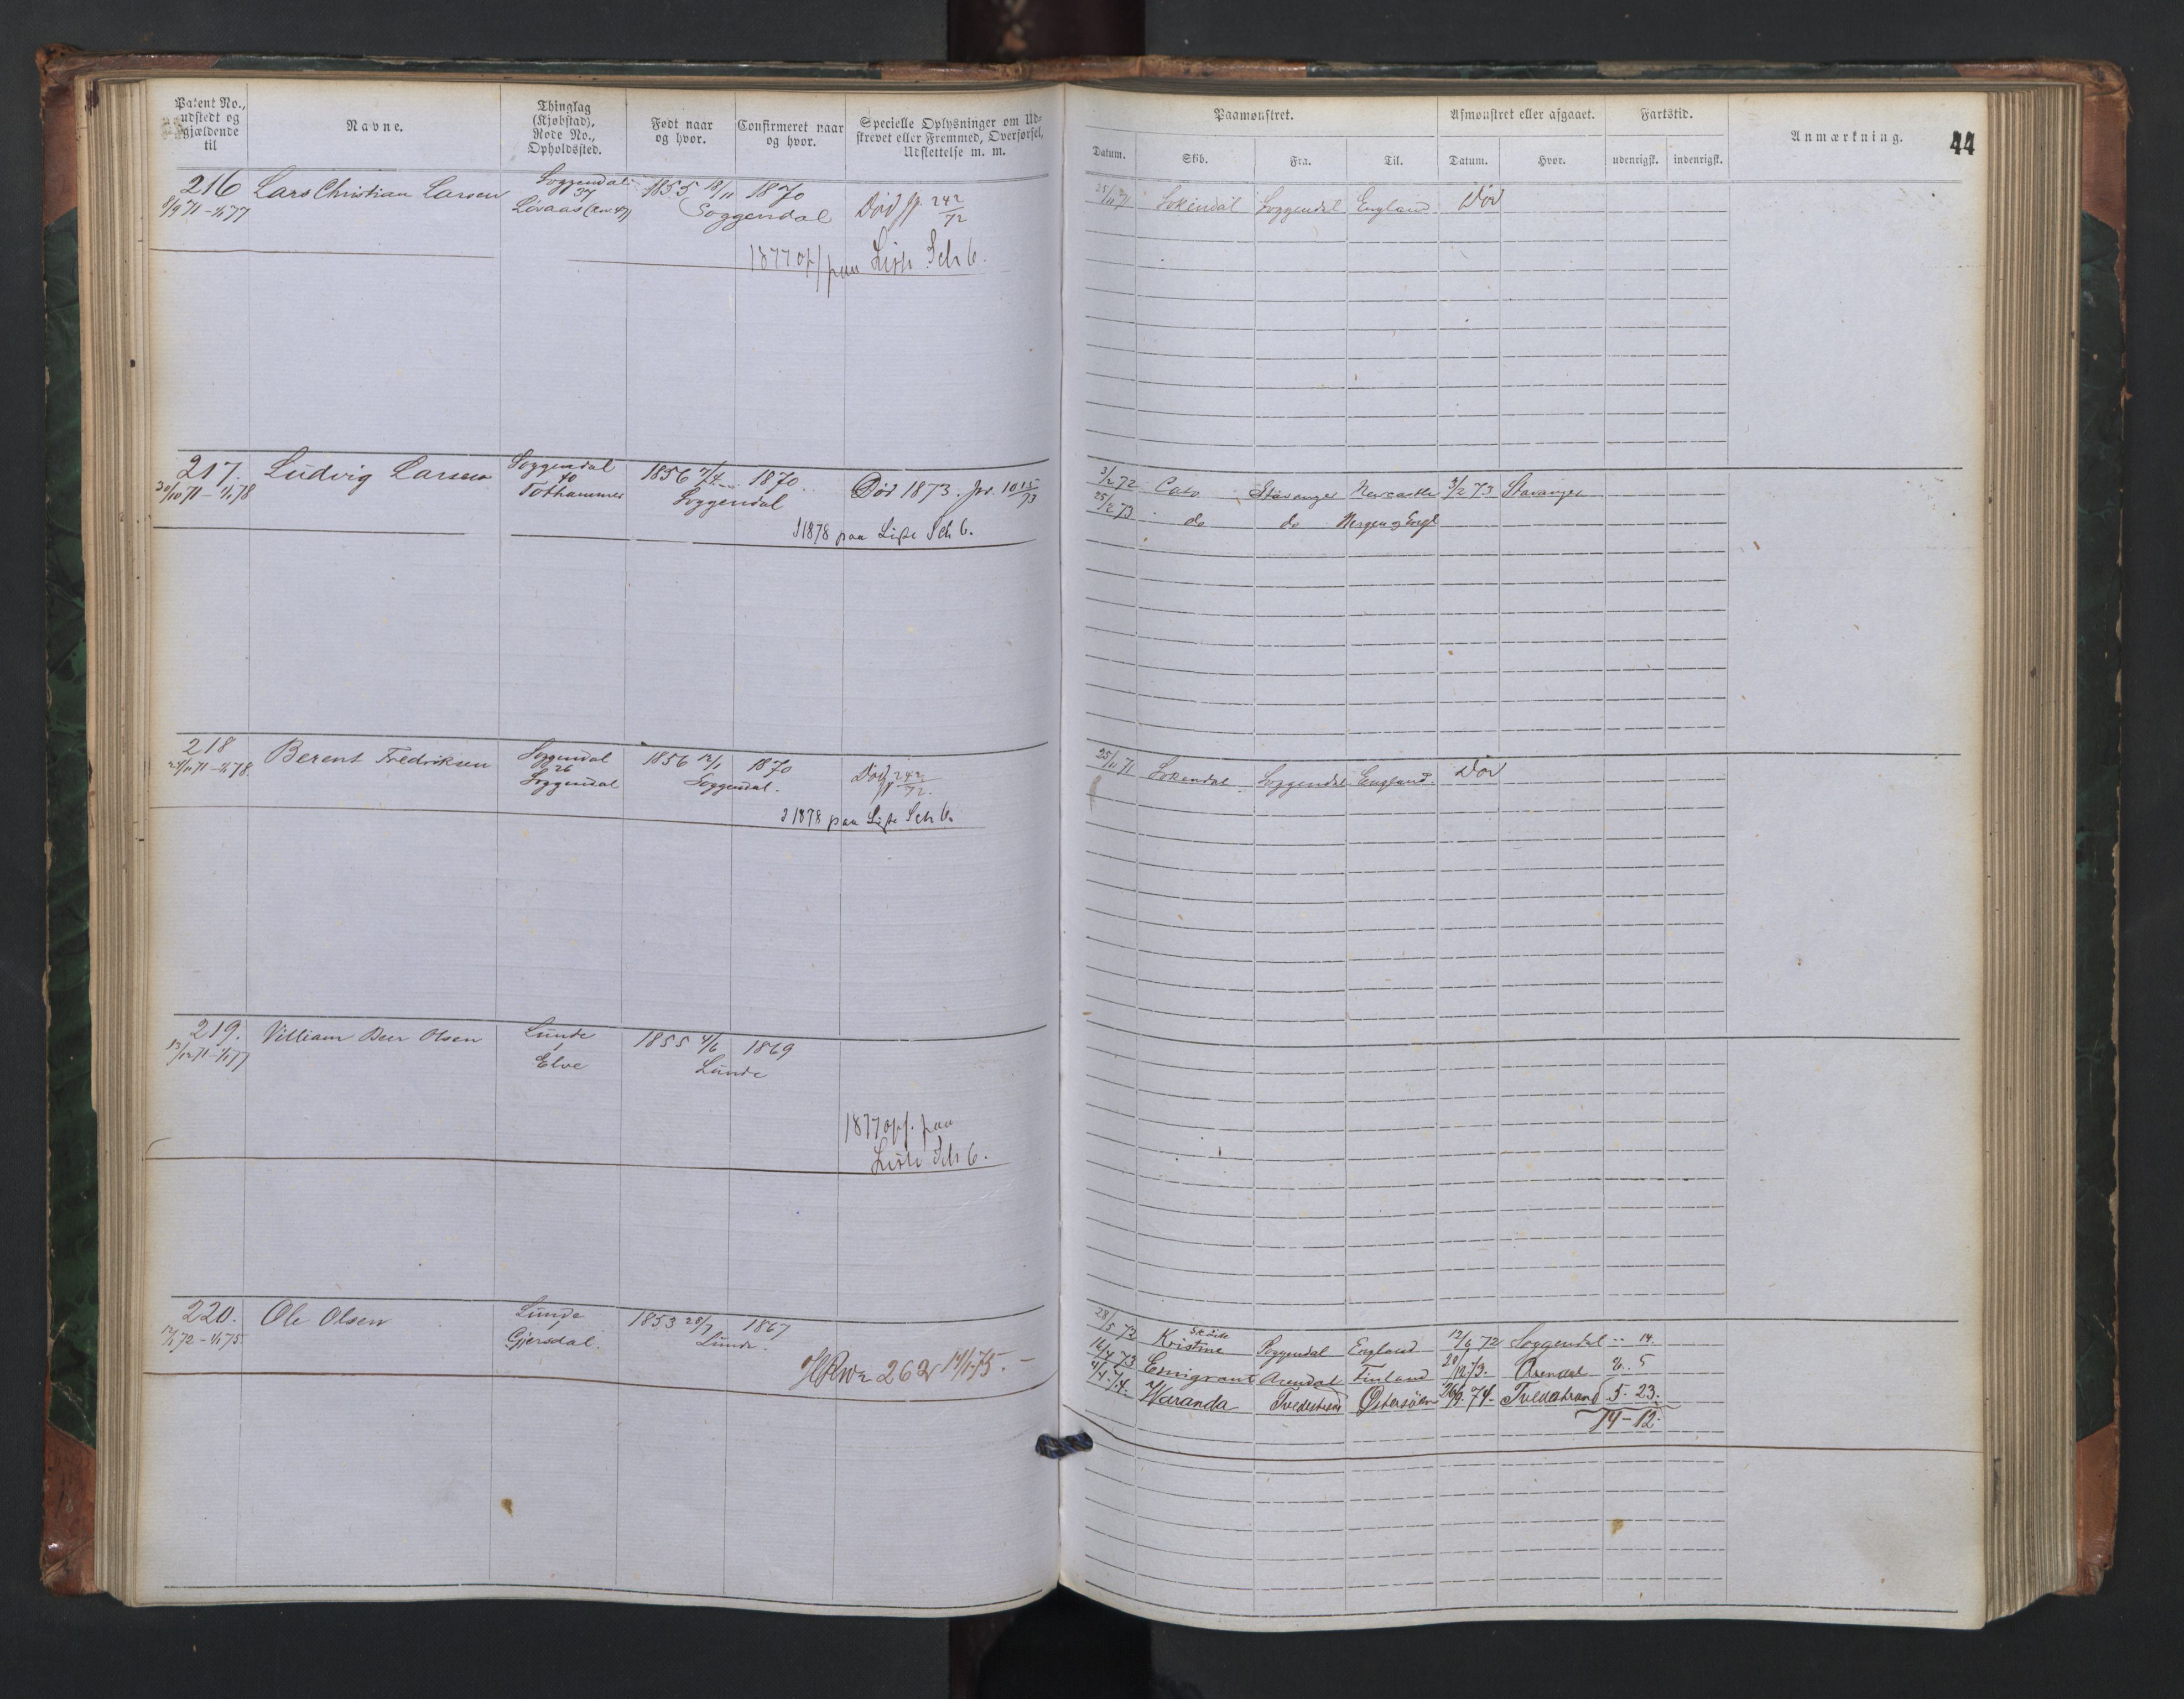 Patent No., udstedt og gjældende til
Navne.
Thinglag (Kjøbstad), Rode No., Opholdssted.
Født naar og hvor.
Confirmeret naar og hvor.
Specielle Oplysninger om Ud-
skrevet eller Fremmed, Overførsel,
Udslettelse m. m.
Paamønstret.
Afmønstret eller afgaaet.
Fartstid.
Anmærkning.
44
Datum.
Skib.
Fra.
Til.
Datum.
Hvor.
udenrigsk.
indenrigsk.
216 Lars Christian Larsen Soggendal 1855 18/11 1870
8/9 71 - 1/1 77 37
Løvaas Soggendal Død jr. 242/72
1877 opf paa Liste Sch 6.
25/11 71 Sokndal Soggendal England Død
217. Ludvig Larsen Soggendal 1856 7/4 1870
30/10 71 - 1/1 78 40
Tothammer Soggendal Død 1873. jr. 1015/73
1878 paa Liste Sch 6.
3/2 72 Cato Stavanger Newcastle 3/2 73 Stavanger
25/2 73 do do
218 Berent Fredriksen Soggendal 1856 12/1 1870
24/11 71 - 1/1 78 26
Soggendal Soggendal. Død jr 242/72.
1878 paa Liste Sch 6.
25/11 71 Sokendal Soggendal England Død
219. Villiam Beer Olsen Lunde 1855 4/6 1869
13/12 71 - 1/1 77 1
Elve Lunde
1877 opf. paa
Liste Sch 6.
220. Ole Olsen Lunde 1853 20/7 1867
12/1 72 - 1/1 75 1
Gjersdal. Lunde.
262 14/1 75.
28/5 72 Kristine Soggendal England 12/6 72 Soggendal -- 14.
16/4 73 Emigrant Arendal Finland 20/10 73. Arendal 8. 5
4/4 74. Waranda Tvedestrand Østersøen 26/9 74 - Tvedestrand 5. 23.
14 - 12.